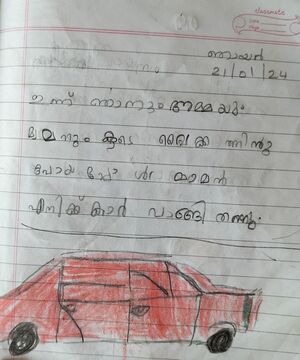 classmate
Date
Page
ഞായർ
21/01/24
ഇന്ന് ഞാനും അമ്മയും
മാമനും കൂടെ ബൈക്കിന്നു
പോയപ്പോൾ മാമൻ
എനിക്ക് കാർ വാങ്ങി തന്നു.